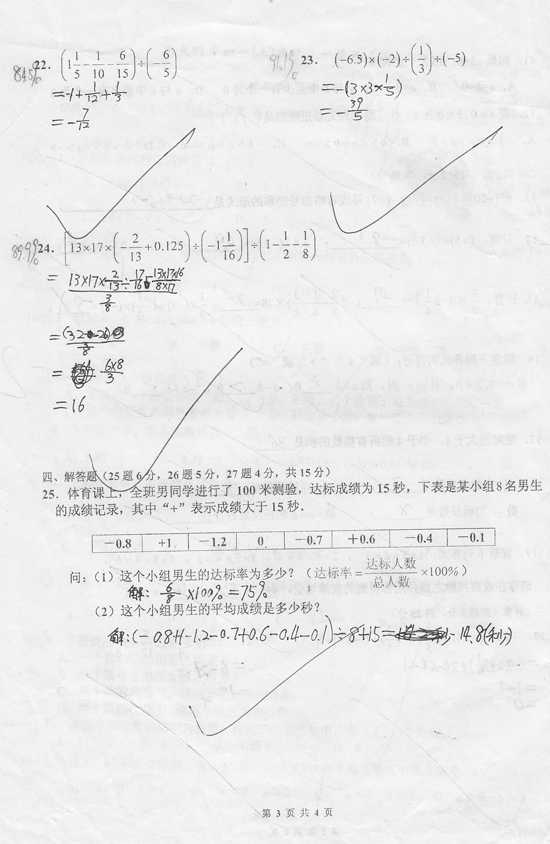 84.5%
22. (1 1/5 - 1/10 - 6/15) ÷ (-6/5)
= -1 + 1/12 + 1/3
= -7/12
92.1%
23. (-6.5)×(-2)÷(1/3)÷(-5)
= -(13×3×1/5)
= -39/5
89.9%
24. [13×17×(-2/13+0.125)÷(-1 1/16)]÷(1-1/2-1/8)
= 16
四、解答题（25题6分，26题5分，27题4分，共15分）
25. 体育课上，全班男同学进行了100米测验，达标成绩为15秒，下表是某小组8名男生
的成绩记录，其中“+”表示成绩大于15秒.
-0.8 +1 -1.2 0 -0.7 +0.6 -0.4 -0.1
问：（1）这个小组男生的达标率为多少？（达标率=达标人数/总人数×100%）
解：6/8×100%=75%
（2）这个小组男生的平均成绩是多少秒？
解：(-0.8+1-1.2-0.7+0.6-0.4-0.1)÷8+15= 14.8(秒)
第 3 页 共 4 页